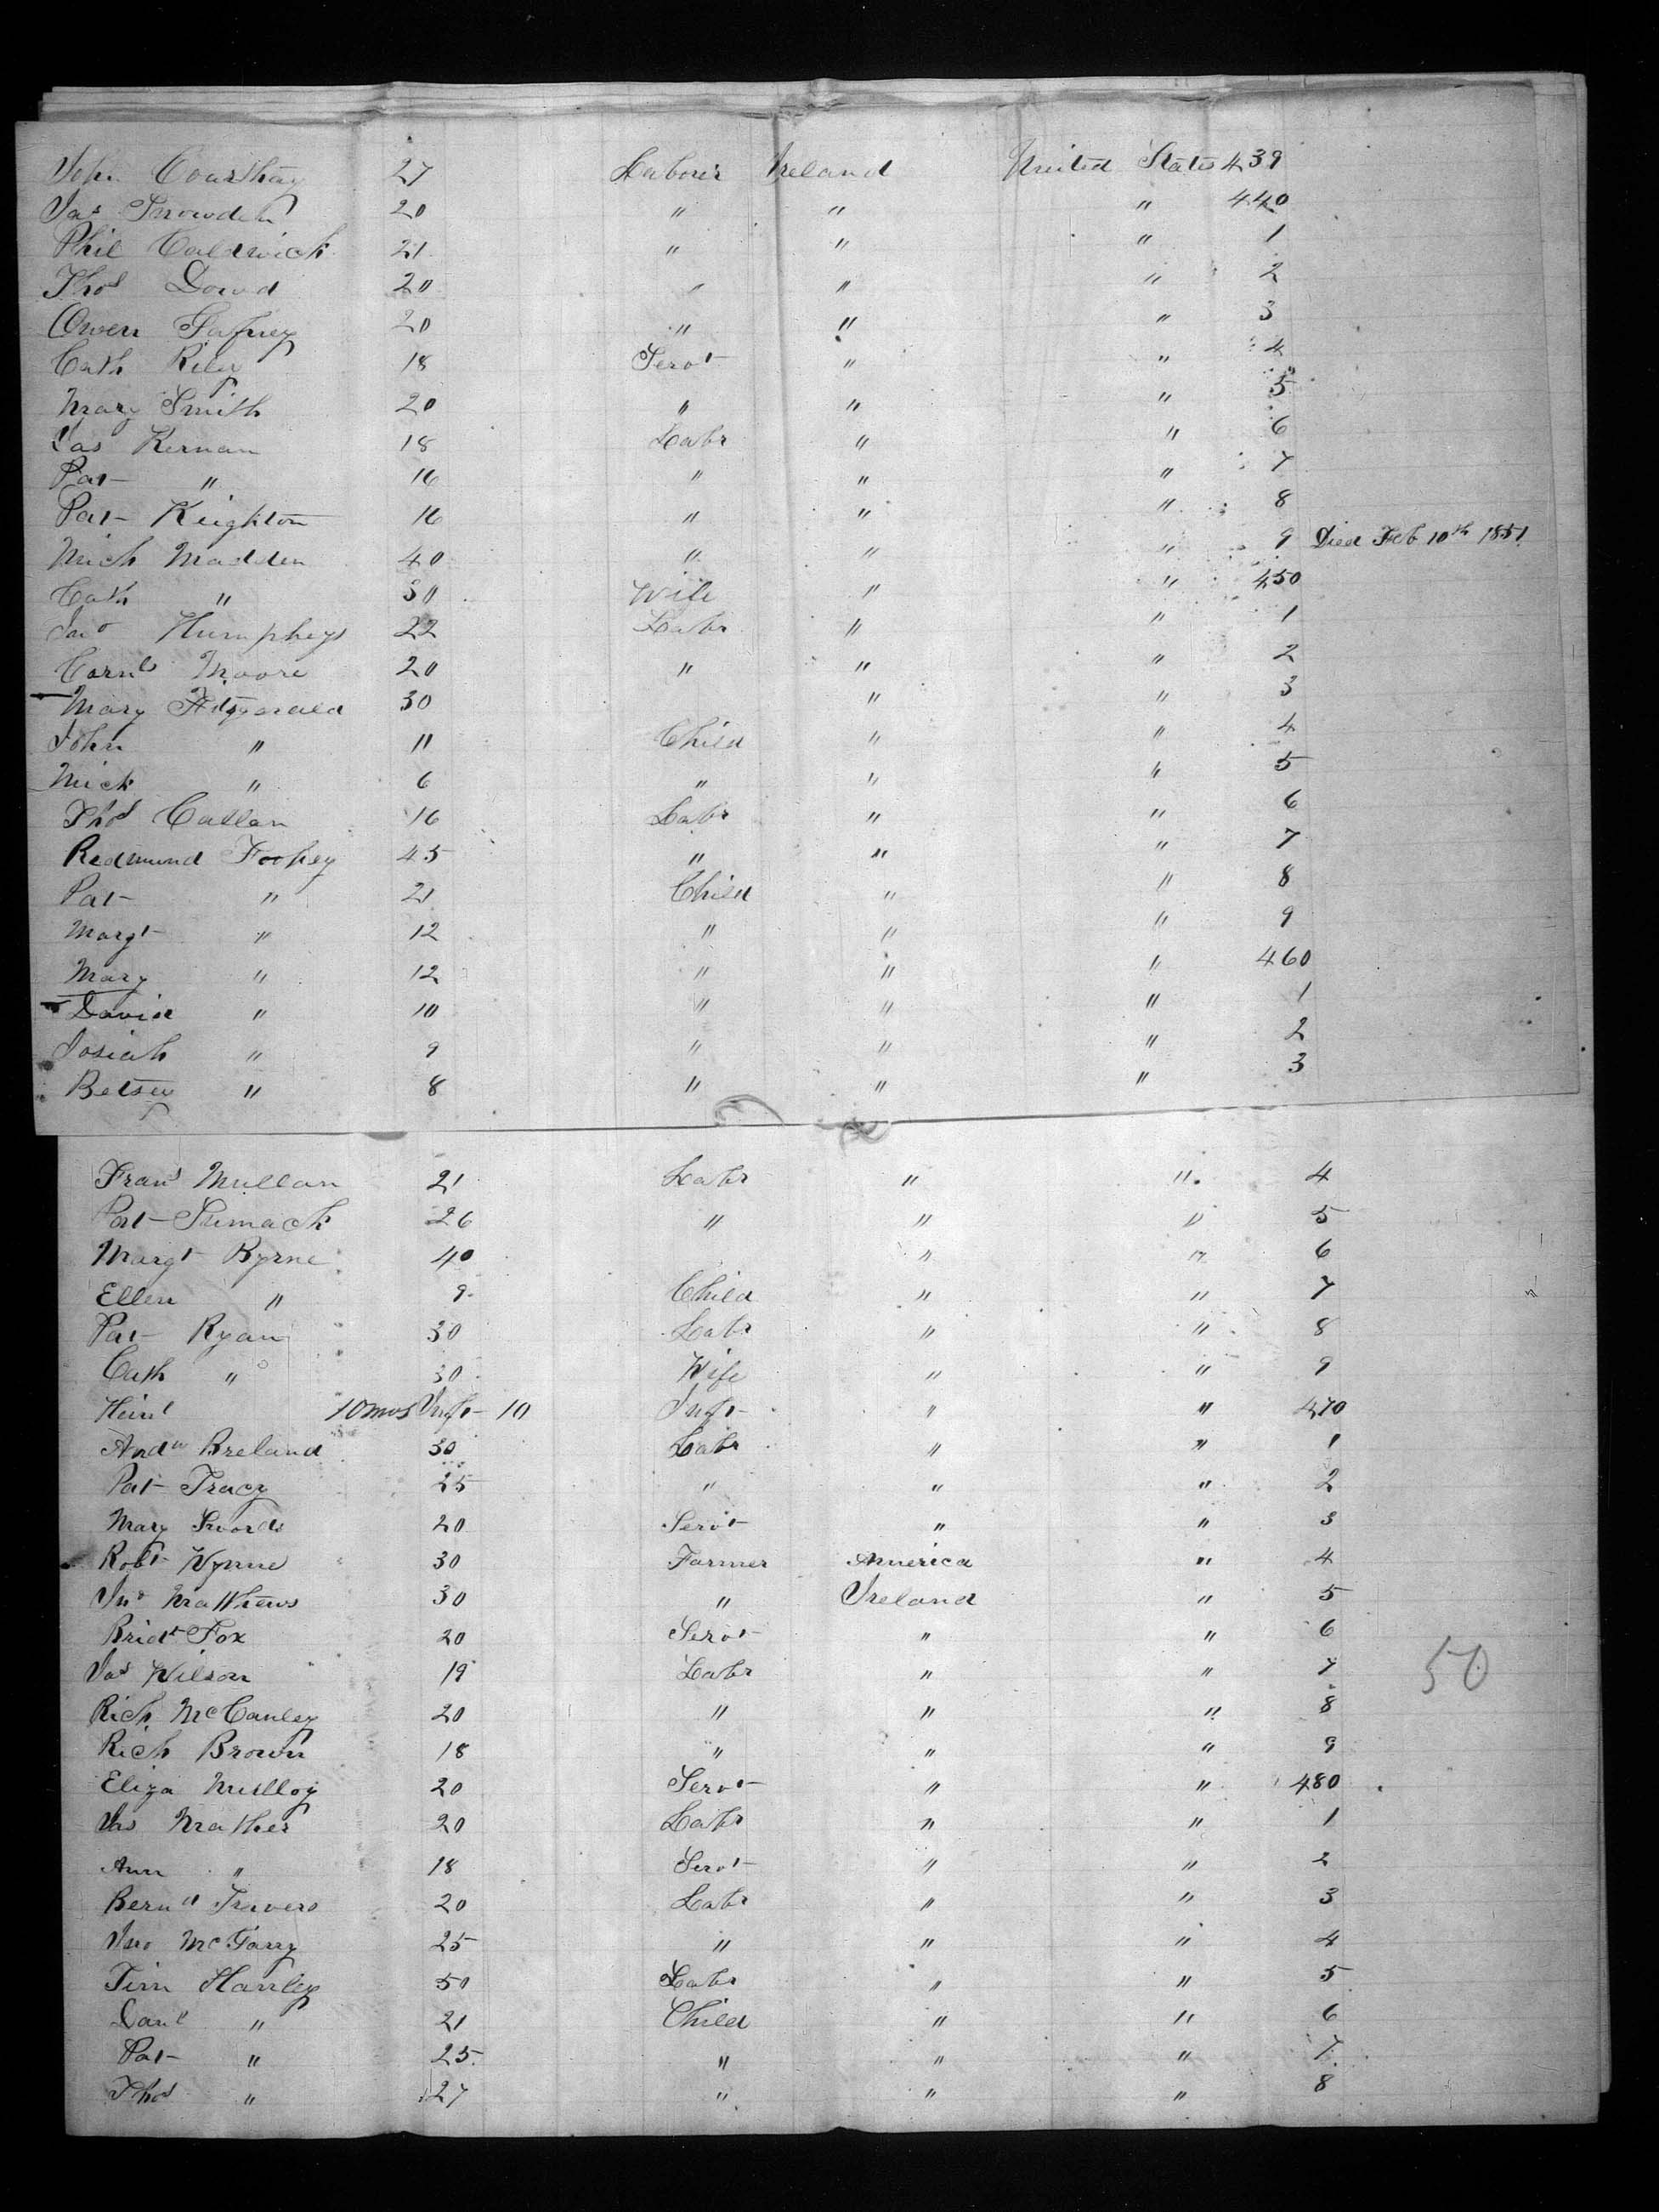 John Courthay 27 Laborer Ireland United States 439
Jas Snowden 20 " " " 440
Phil Caldwick 21 " " " 1
Thos Dowd 20 " " " 2
Owen Gafney 20 " " " 3
Cath Riley 18 Servt " " 4
Mary Smith 20 " " " 5
Jas Kernan 18 Labr " " 6
Pat " 16 " " " 7
Pat Keighton 16 " " " 8
Mich Madden 40 " " " 9 Died Feb 10th 1851
Cath " 30 Wife " " 450
Jno Humpheys 22 Labr " " 1
Cornls Moore 20 " " " 2
Mary Fitzgerald 30 " " 3
John " 11 Child " " 4
Mich " 6 " " " 5
Thos Callan 16 Labr " " 6
Redmund Foohey 45 " " " 7
Pat " 21 Child " " 8
Margt " 12 " " " 9
Mary " 12 " " " 460
David " 10 " " " 1
Josiah " 9 " " " 2
Betsey " 8 " " " 3
Frans Mullan 21 Labr " " 4
Pat 26 " " " 5
Margt Byrne 40 " " 6
Ellen " 9 Child " " 7
Pat Ryan 30 Labr " " 8
Cath " 30 Wife " " 9
10 mos Inft 10 Inft " " 470
Andw Breland 30 Labr " " 1
Pat Tracy 25 " " " 2
Mary Swords 20 Servt " " 3
Robt Wynne 30 Farmer America " 4
Jno Matthews 30 " Ireland " 5
Bridt Fox 20 Servt " " 6
Jas Wilson 19 Labr " " 7
Rich McCanley 20 " " " 8
Rich Brown 18 " " " 9
Eliza Mulloy 20 Servt " " 480
Jas Mather 20 Labr " " 1
Ann " 18 Servt " " 2
Bernd Travers 20 Labr " " 3
Jno McGarry 25 " " " 4
Tim Hanley 50 Labr " " 5
Danl " 21 Child " " 6
Pat " 25 " " " 7
Thos " 27 " " " 8
50